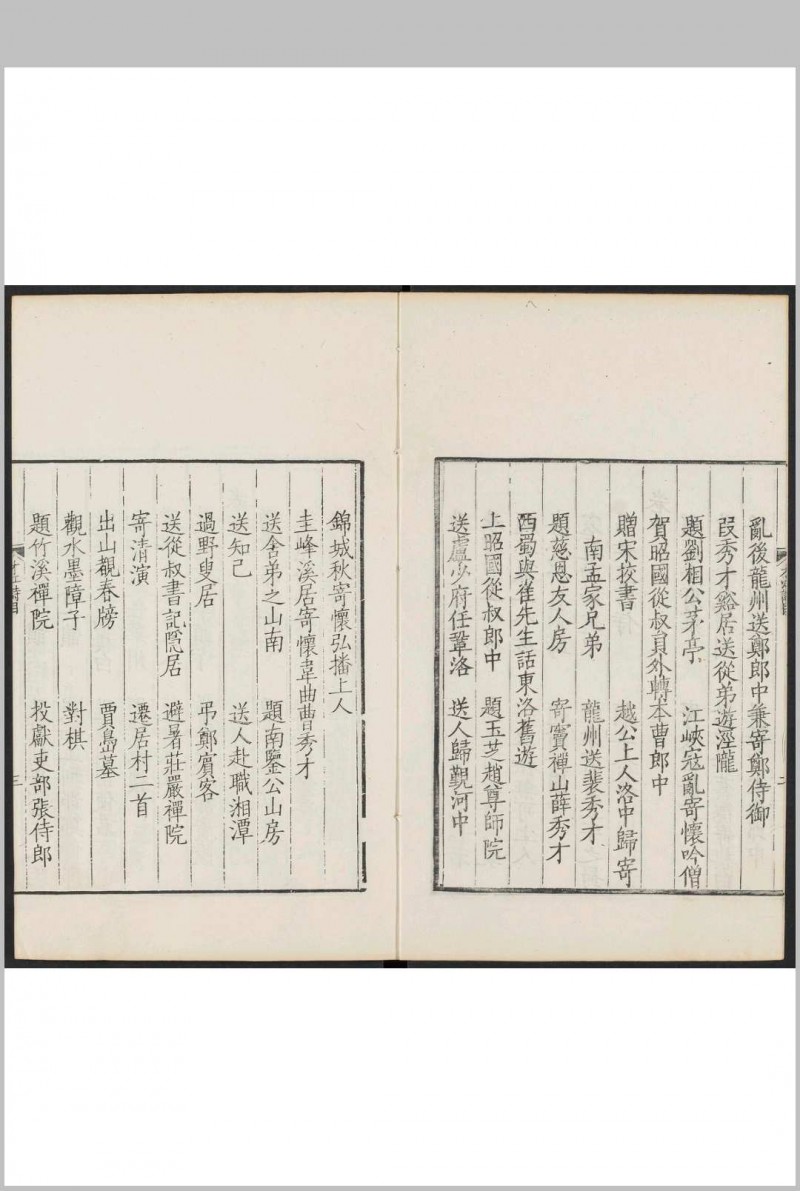 亂後龍州送鄭郎中兼寄鄭侍御
段秀才谿居送從弟遊涇隴
題劉相公茅亭　江峽寇亂寄懷吟僧
賀昭國從叔員外轉本曹郎中
贈宋校書　越公上人洛中歸寄
南孟家兄弟　龍州送裴秀才
題慈恩友人房　寄竇禪山薛秀才
西蜀與崔先生話東洛舊遊
上昭國從叔郎中　題玉芝趙尊師院
送盧少府任鞏洛　送人歸覲河中
二
錦城秋寄懷弘播上人
圭峰溪居寄懷韋曲曹秀才
送舍弟之山南　題南鑒公山房
送知己　送人赴職湘潭
過野叟居　弔鄭賓客
送從叔書記隠居　避暑莊嚴禪院
寄清演　遷居村二首
出山覩春牓　賈島墓
觀水墨障子　對棋
題竹溪禪院　投獻吏部張侍郎
三